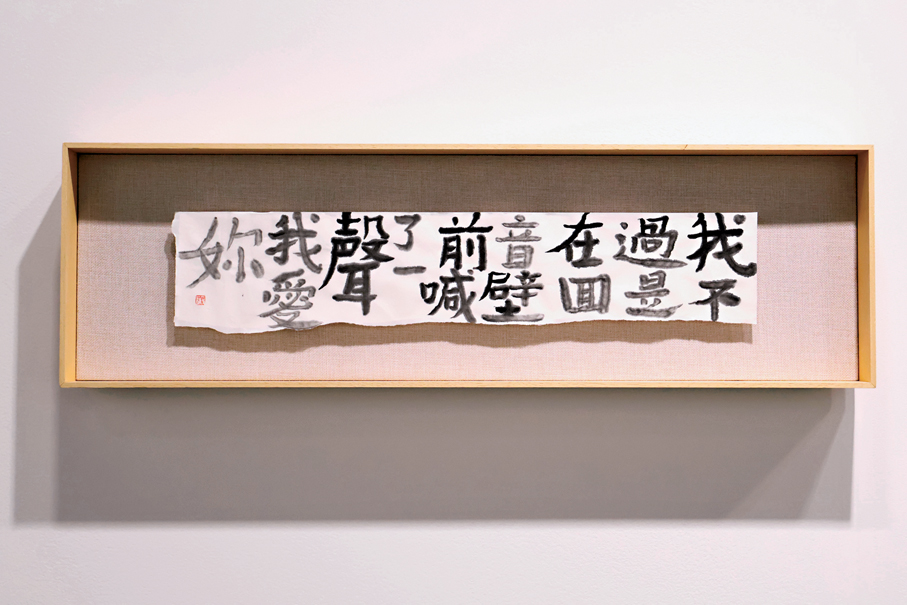 我不
過是
在回
音壁
前喊
了一
聲
我愛
妳